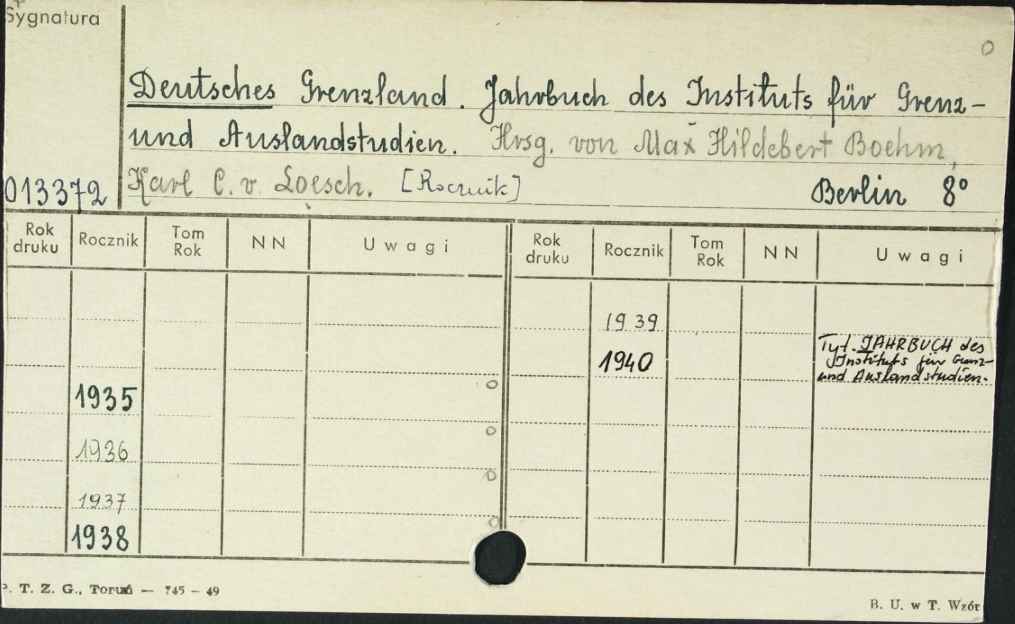 Sygnatura
Deutsches Grenzland. Jahrbuch des Instituts für Grenz-
und Auslandstudien. Hrsg. von Max Hildebert Boehm,
013372 Karl C. v. Loesch. [Rocznik] Berlin 8°
Rok druku Rocznik Tom Rok NN Uwagi Rok druku Rocznik Tom Rok NN Uwagi
1939
1940 Tyt. JAHRBUCH des
Instituts für Grenz-
und Auslandstudien.
1935
1936
1937
1938
P. T. Z. G., Toruń — 745 - 49
B. U. w T. Wzór